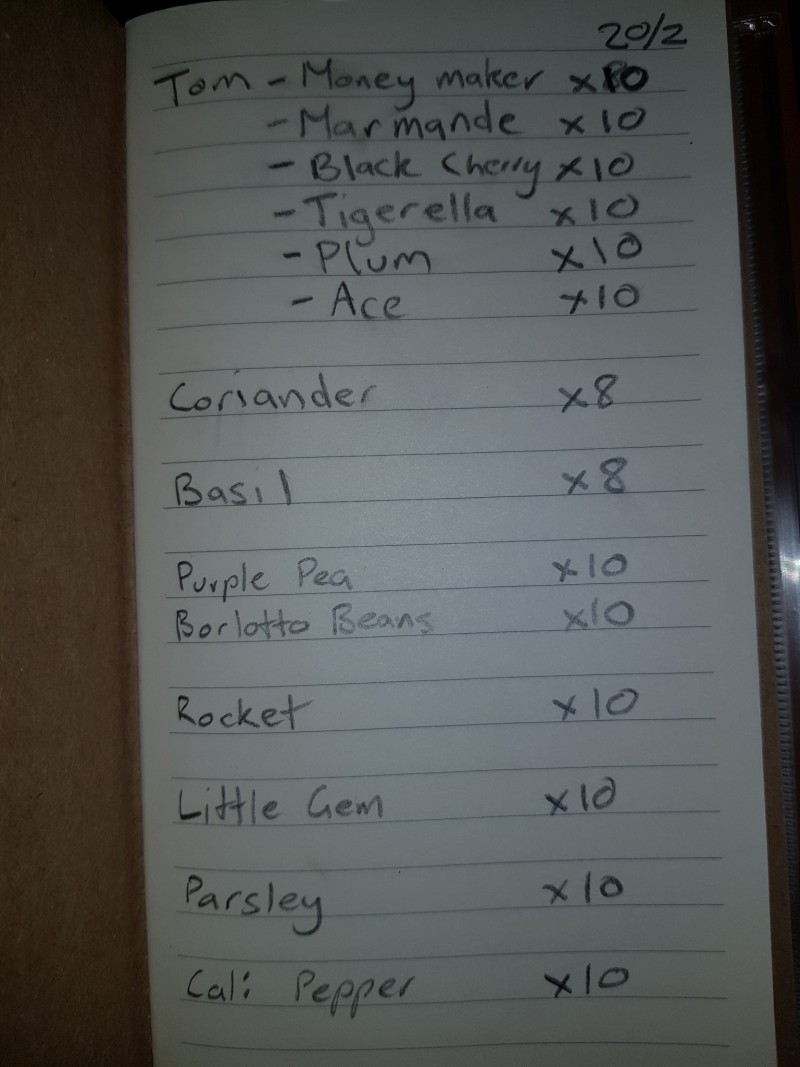 20/2
Tom - Money maker x10
- Marmande x10
- Black Cherry x10
- Tigerella x10
- Plum x10
- Ace x10
Coriander x8
Basil x8
Purple Pea x10
Borlotto Beans x10
Rocket x10
Little Gem x10
Parsley x10
Cali Pepper x10